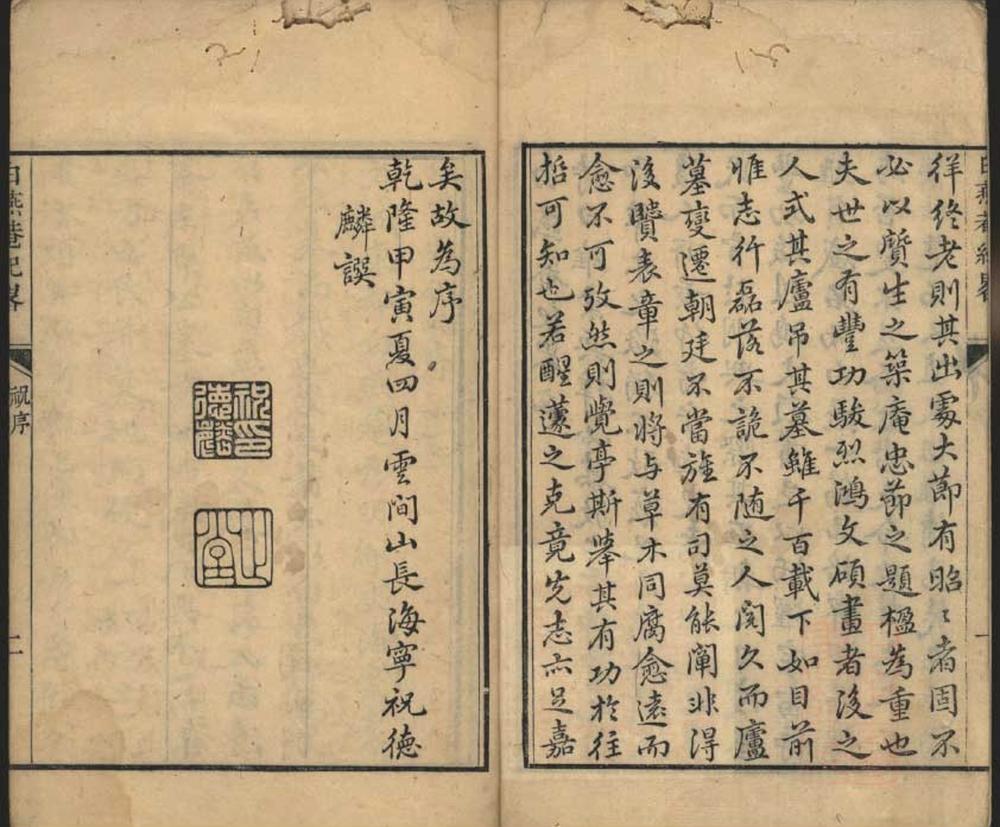 徉終老則其出處大節有昭〻者固不
必以贤生之築庵忠節之題楹為重也
夫世之有豐功駿烈鴻文碩畫者後之
人式其廬吊其墓雖千百載下如目前
惟志行磊落不詭不随之人閱久而廬
墓變遷朝廷不當旌有司莫能闡非得
後贒表章之則將与草木同腐愈遠而
愈不可攷然則覺亭斯舉其有功於往
哲可知也若醒蘧之克竟先志亦足嘉
矣故為序
乾隆甲寅夏四月雲間山長海寧祝德
麟譔
祝印
德麟
止堂
白燕菴紀畧
祝序
二